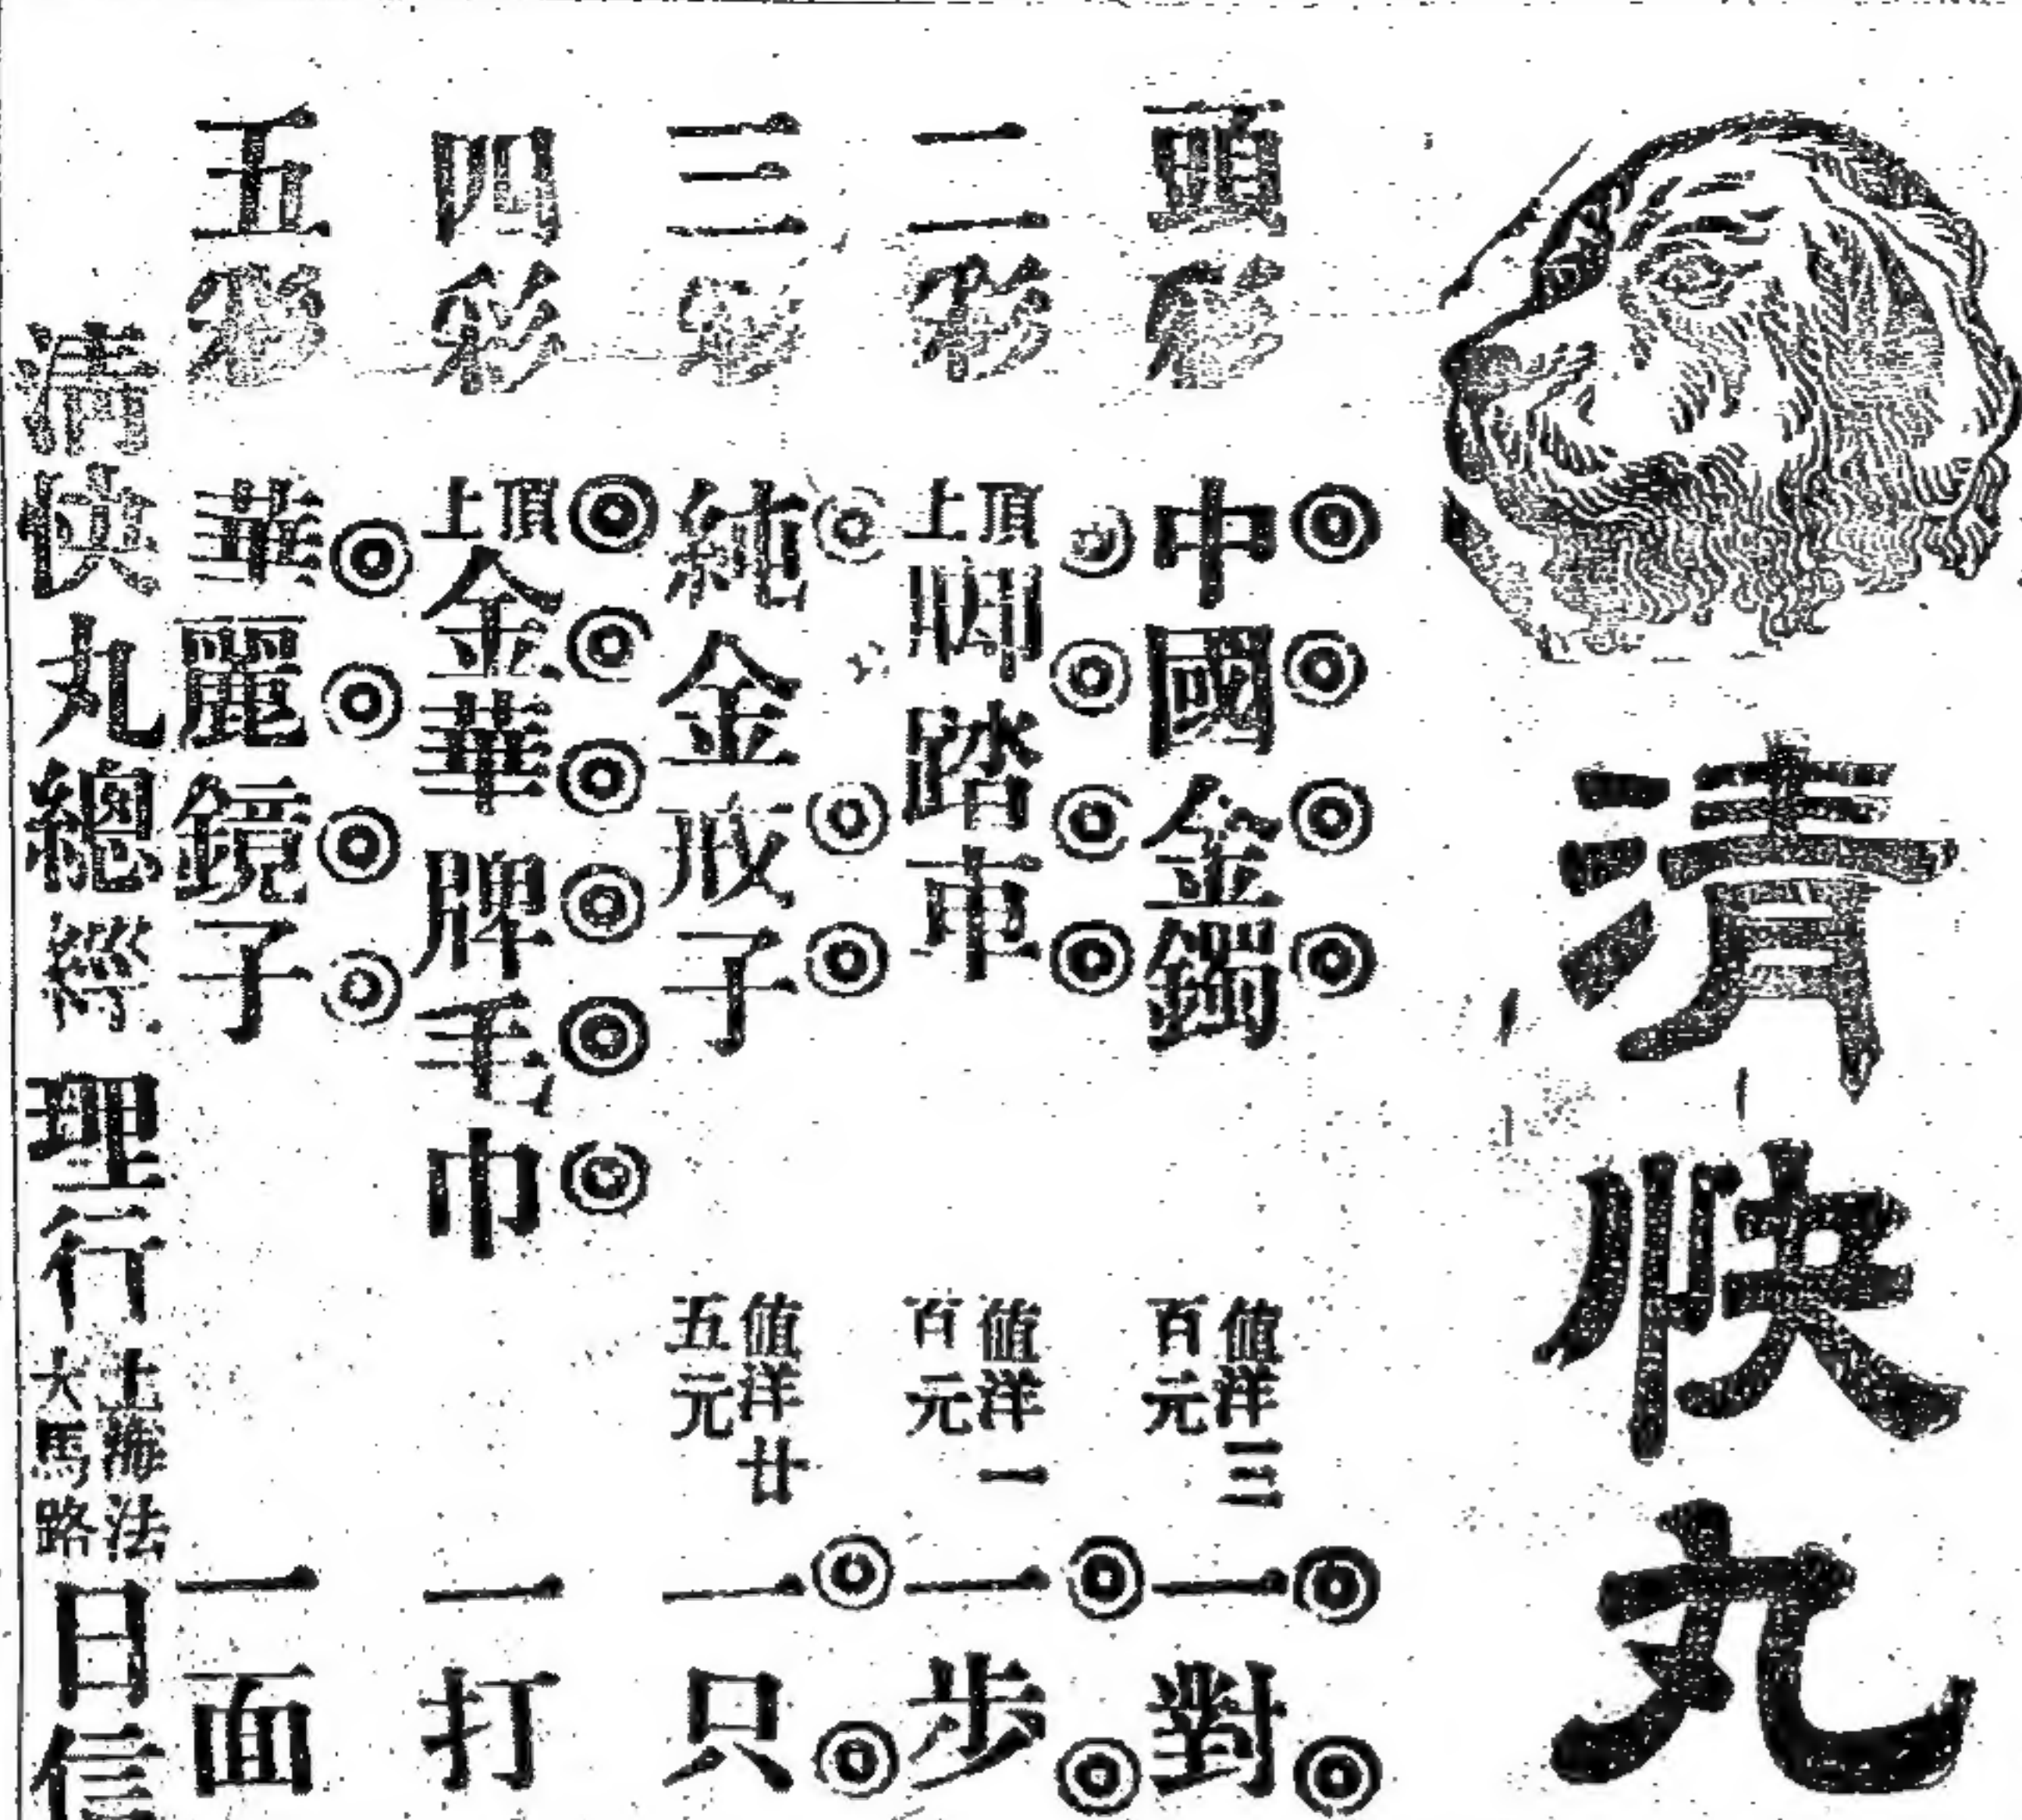 清快丸
頭彩 中國金鐲 值洋三百元 一對
二彩 頂上脚踏車 值洋一百元 一步
三彩 純金戒子 值洋廿五元 一只
四彩 頂上金華牌毛巾 一打
五彩 華麗鏡子 一面
清快丸總經理行 上海法大馬路 日信